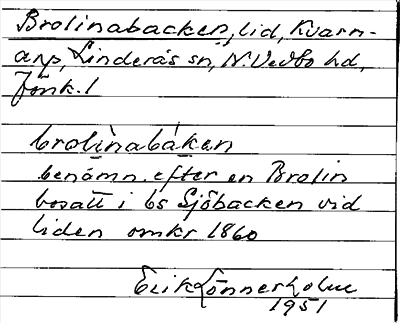 Brolinabacken, lid, Kvarn-
arp, Linderås sn, N. Vedbo hd,
Jönk. l
brolìnabáken
benämn. efter en Brolin
bosatt i bs Sjöbacken vid
liden omkr 1860
Erik Lönnerholm
1951